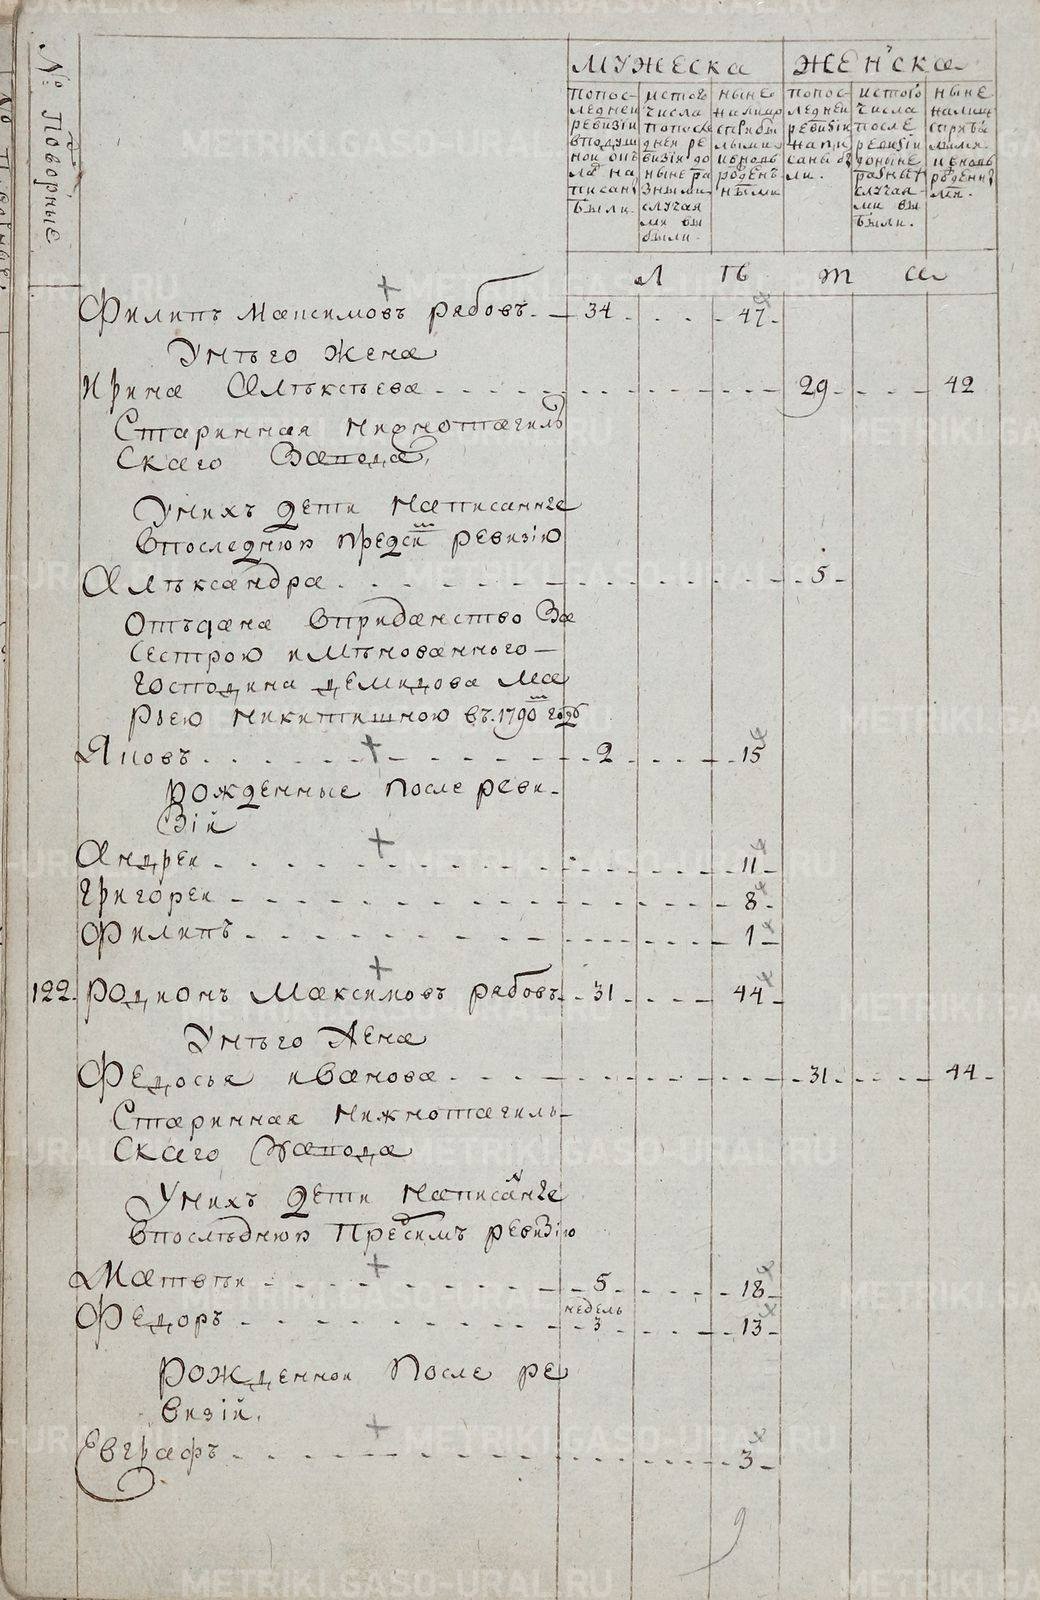 № Подворные
МУЖЕСКА
ЖЕНЪСКА
попос-
ледней
ревизiи
вподуш
ной опъ
ла на
писанъ
были
истого
числа
попосле
дней ре
визiи до
ныне ра
зными
случая
ми вы
были.
ныне
налицо
спрыбы
лыми
ивновь
рожденъ
ными
попос-
ледней
ревизiи
напи
саны бы
ли.
истого
числа
после
ревизiи
доныне
разныт
случая-
ми вы
были.
ныне
налицо
спрыбы
лыми
ивновь
рожденъ
ми.
Л ѣ т а
Филипъ Максимовъ рябовъ. 34 47
Унѣго жена
ирина Алѣксѣева 29 42
Старинная нижнотагиль
скаго завода,
Унихъ дети написанные
впоследнюю предсию ревизiю
Алѣксандра 5
Отъдана вприданство за
сестрою имѣнованного
господина демидова Ма
рьею никитишною въ. 1790м году
Яковъ 2 15
рожденные после реви-
зiи
Андреи 11
Григореи 8
Филипъ 1
122. Родионъ Максимовъ рябовъ 31 44
Унѣго жена
Федосья иванова 31 44
Старинная нижнотагиль-
скаго завода
Унихъ дети написанные
впослѣднюю пресимъ ревизiю
Матвѣи 5 18
Федоръ недель 3 13
Рожденнои после ре
визiи.
Евграфъ 3
9
METRIKI.GASO-URAL.RU